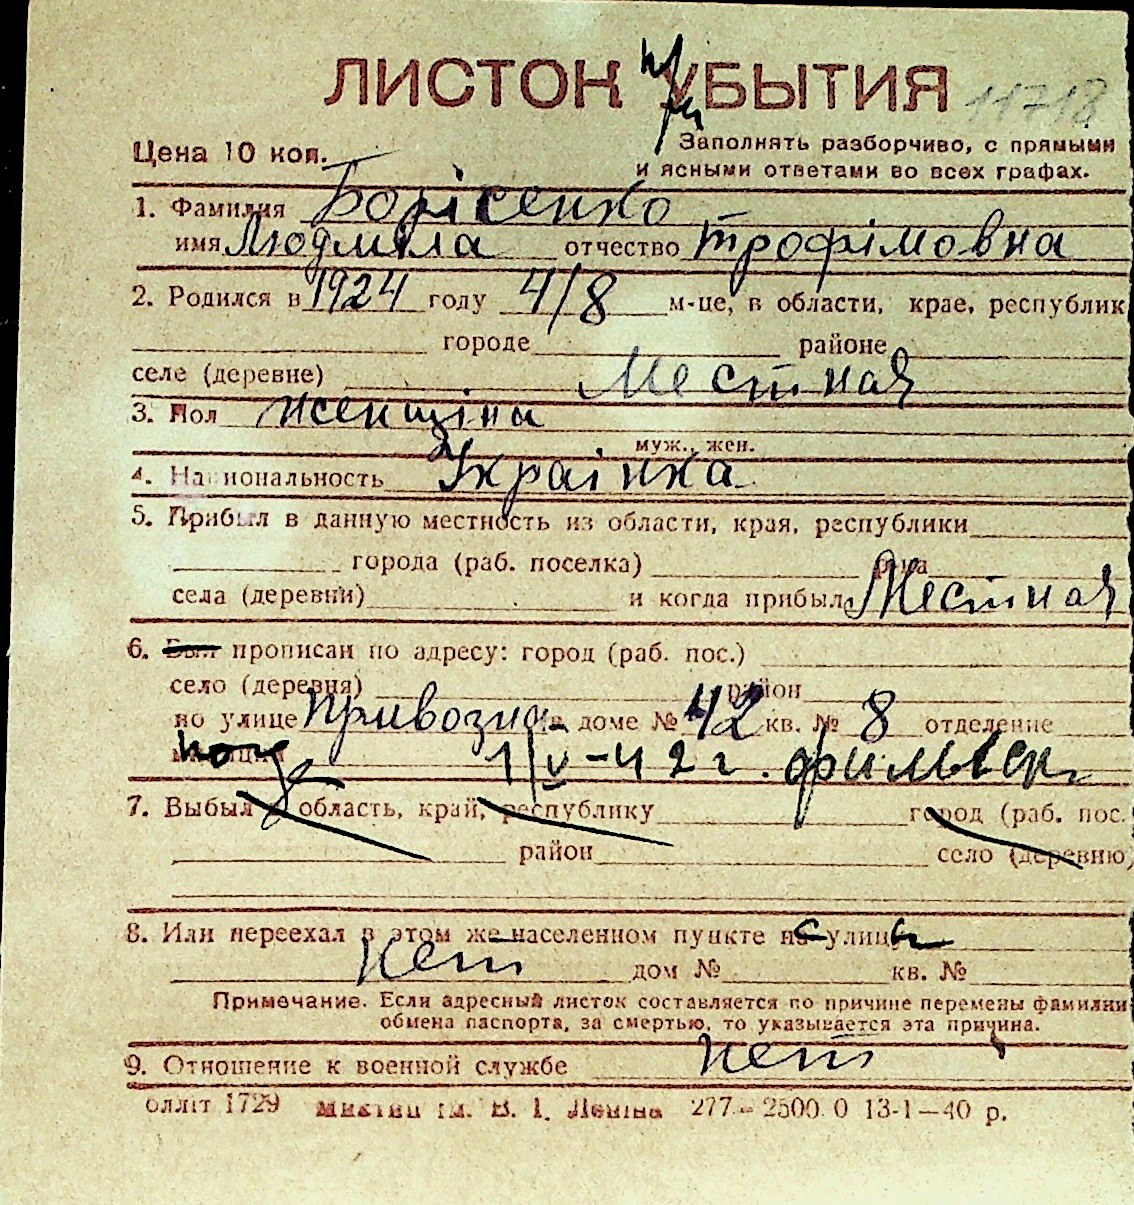 ЛИСТОК УБЫТИЯ 11718
при
Цена 10 коп.
Заполнять разборчиво, с прямыми
и ясными ответами во всех графах.
1. Фамилия Борісенко
имя Людміла отчество Трофімовна
2. Родился в 1924 году 4/8 м-це, в области, крае, республик
городе районе
селе (деревне) Местная
3. Пол женщіна
муж., жен.
4. Национальность Украінка
5. Прибыл в данную местность из области, края, республики
города (раб. поселка) р-на
села (деревни) и когда прибыл Местная
6. Был прописан по адресу: город (раб. пос.)
село (деревня) район
по улице Привозна в доме № 42 кв. № 8 отделение
милиции 1/V-42 г.
7. Выбыл в область, край, республику город (раб. пос.
район село (деревню)
8. Или переехал в этом же населенном пункте на с улицы
нет дом № кв. №
Примечание. Если адресный листок составляется по причине перемены фамилии
обмена паспорта, за смертью, то указывается эта причина.
9. Отношение к военной службе нет
олліт 1729 ім. В. І. Леніна 277 - 2500.0 13-1—40 р.